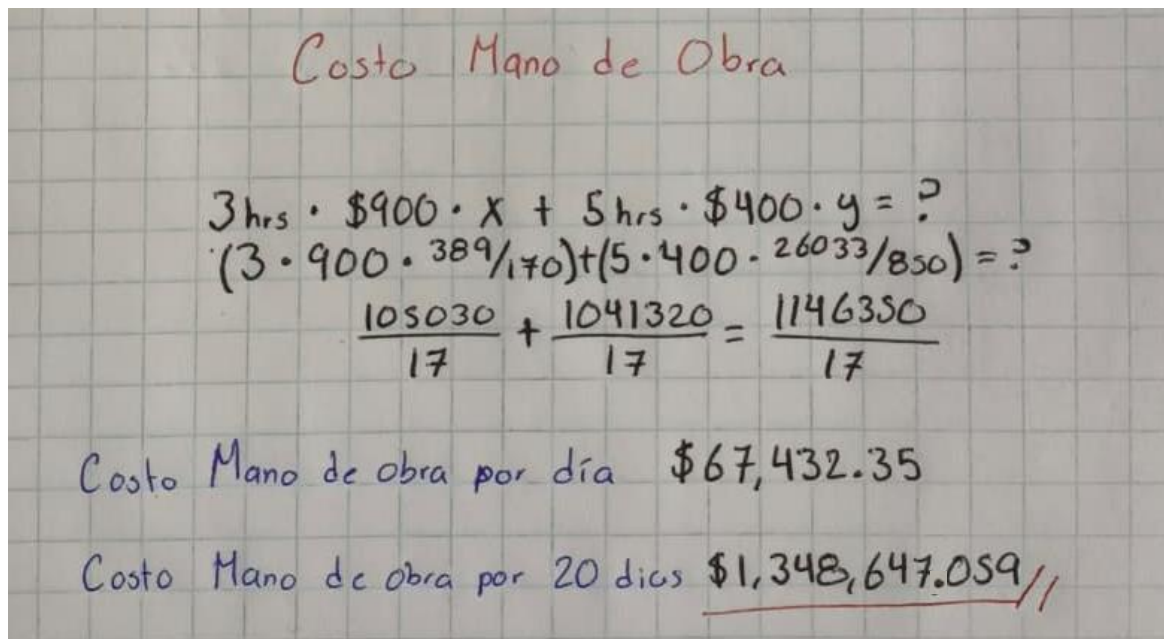 Costo Mano de Obra
3hrs · $900 · x + 5hrs · $400 · y = ?
(3 · 900 · 389/170)+(5 · 400 · 26033/850) = ?
105030/17 + 1041320/17 = 1146350/17
Costo Mano de obra por día $67,432.35
Costo Mano de obra por 20 dias $1,348,647.059//